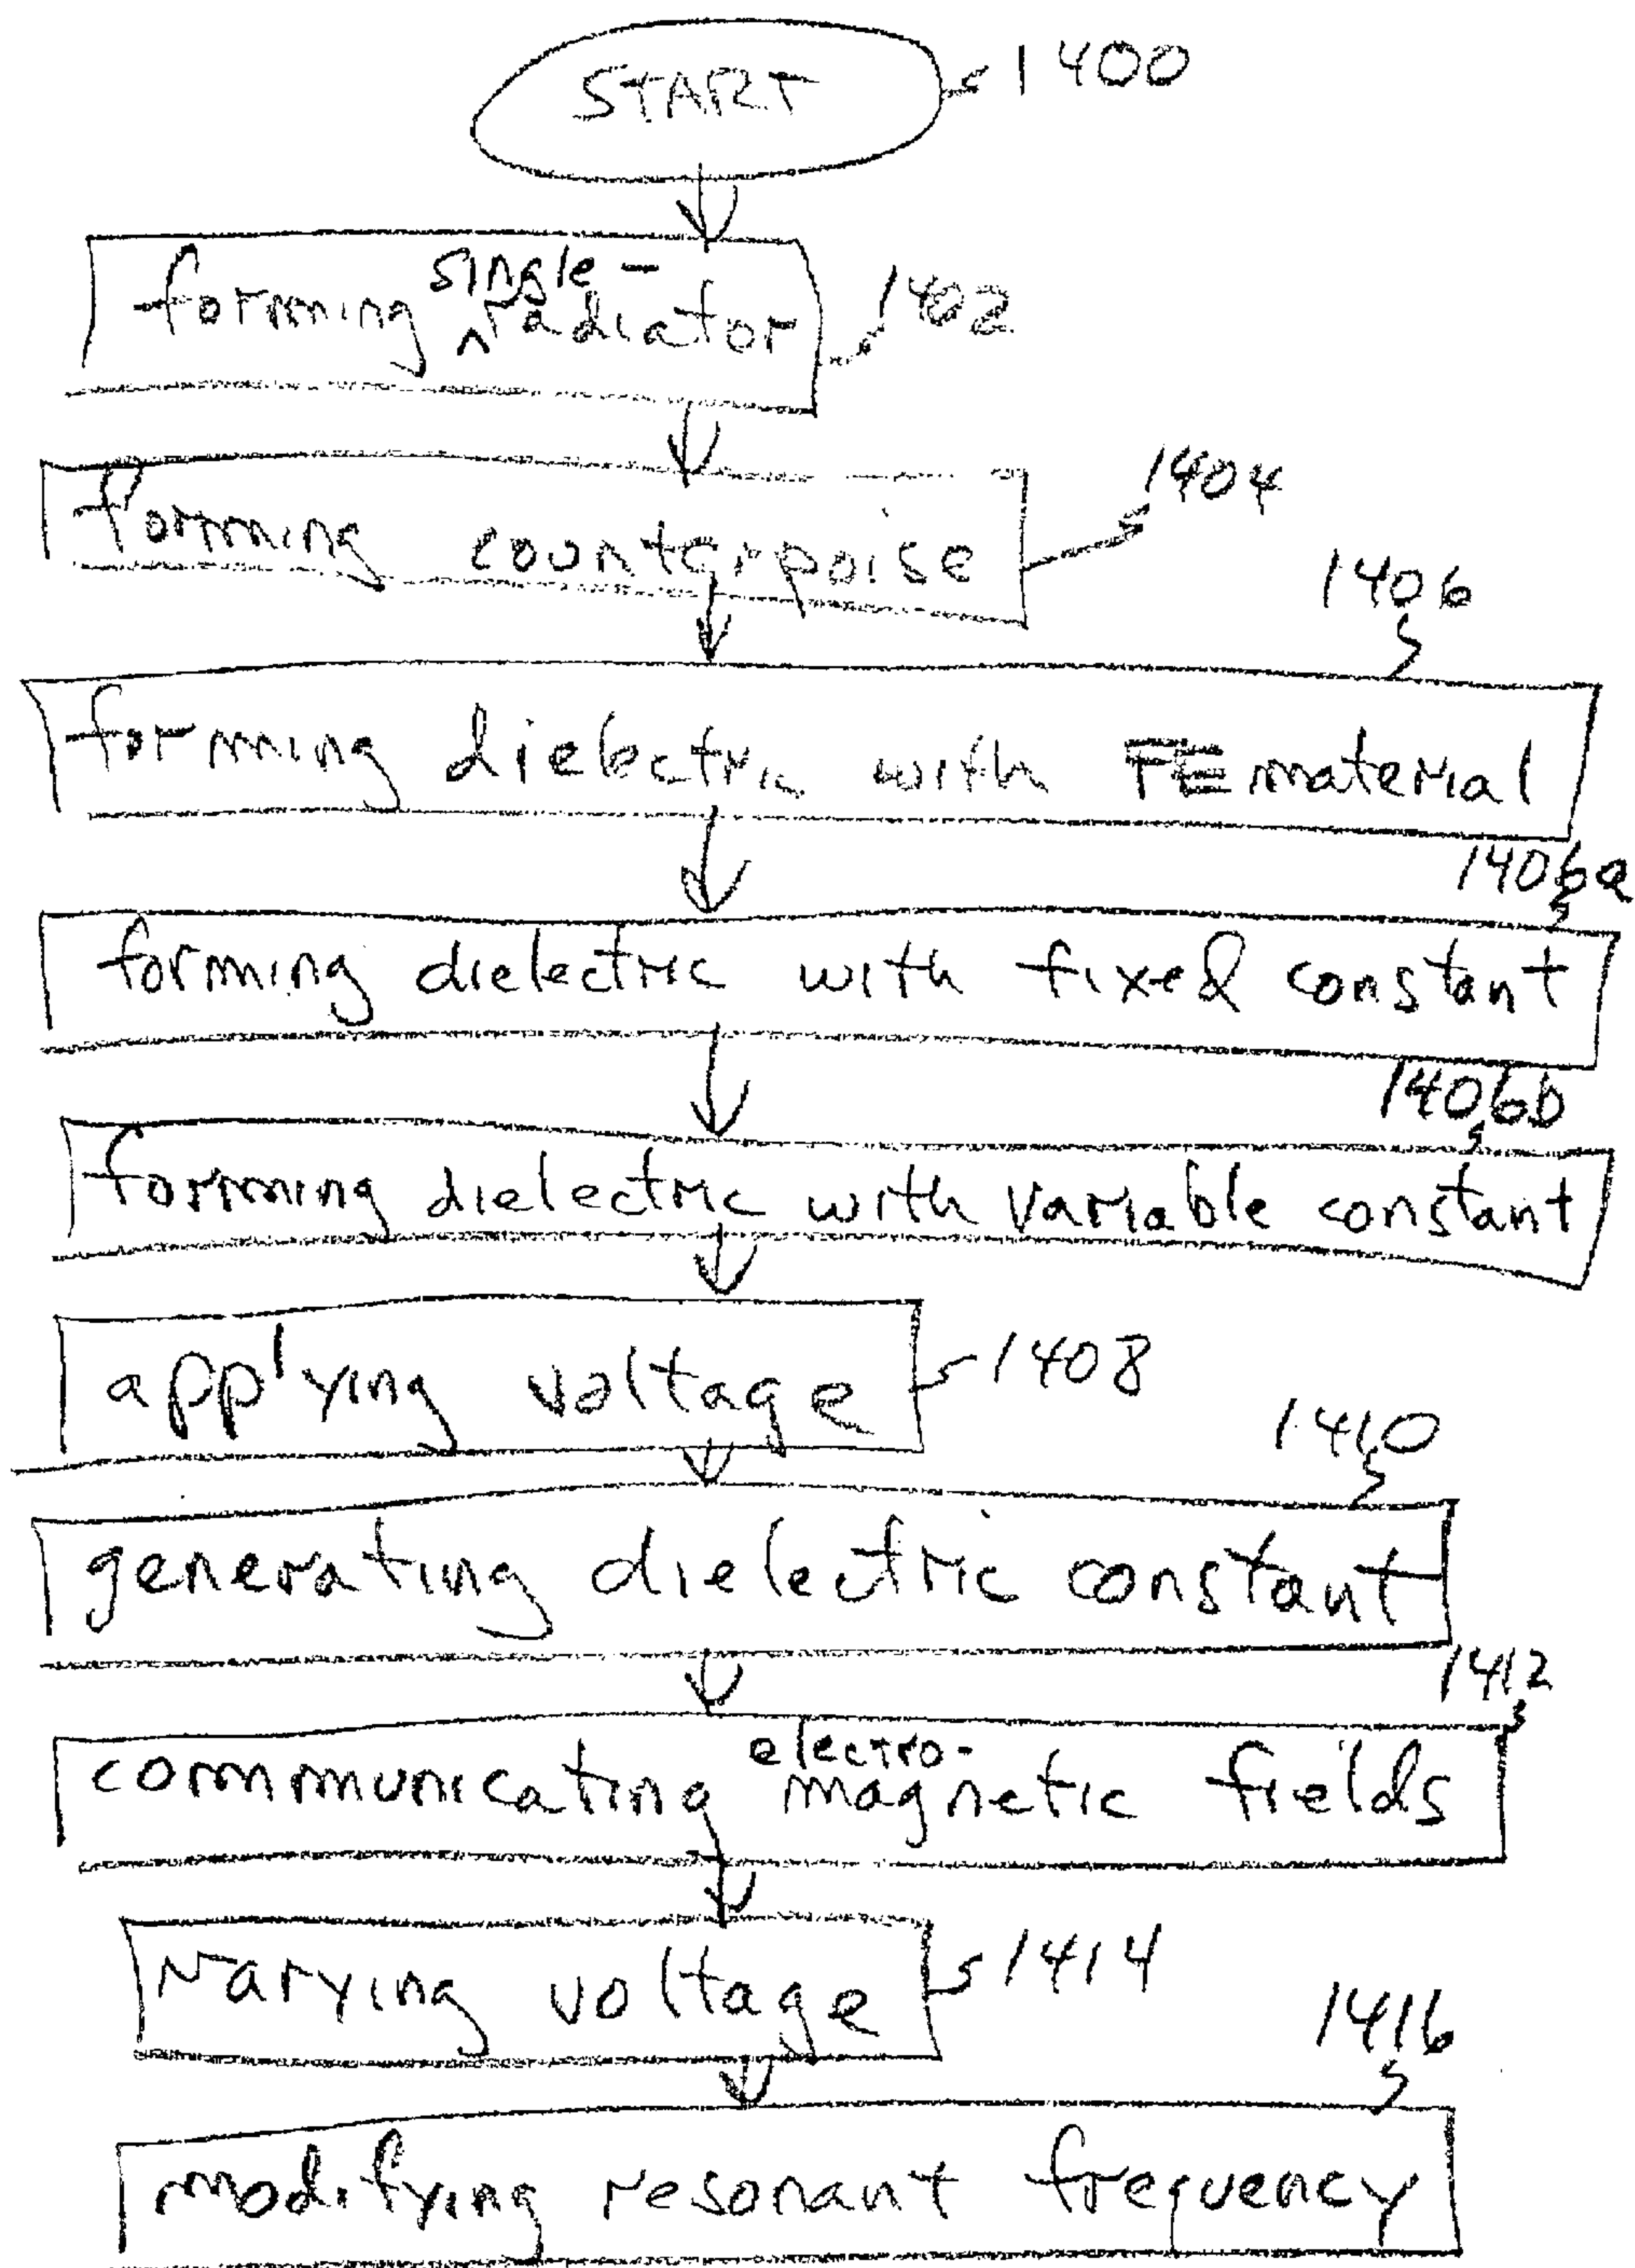 START 1400
single-
forming ^ radiator 1402
forming counterpoise 1404
1406
forming dielectric with FE material
1406a
forming dielectric with fixed constant
1406b
forming dielectric with variable constant
applying voltage 1408
1410
generating dielectric constant
1412
electro-
communicating magnetic fields
varying voltage 1414
1416
modifying resonant frequency